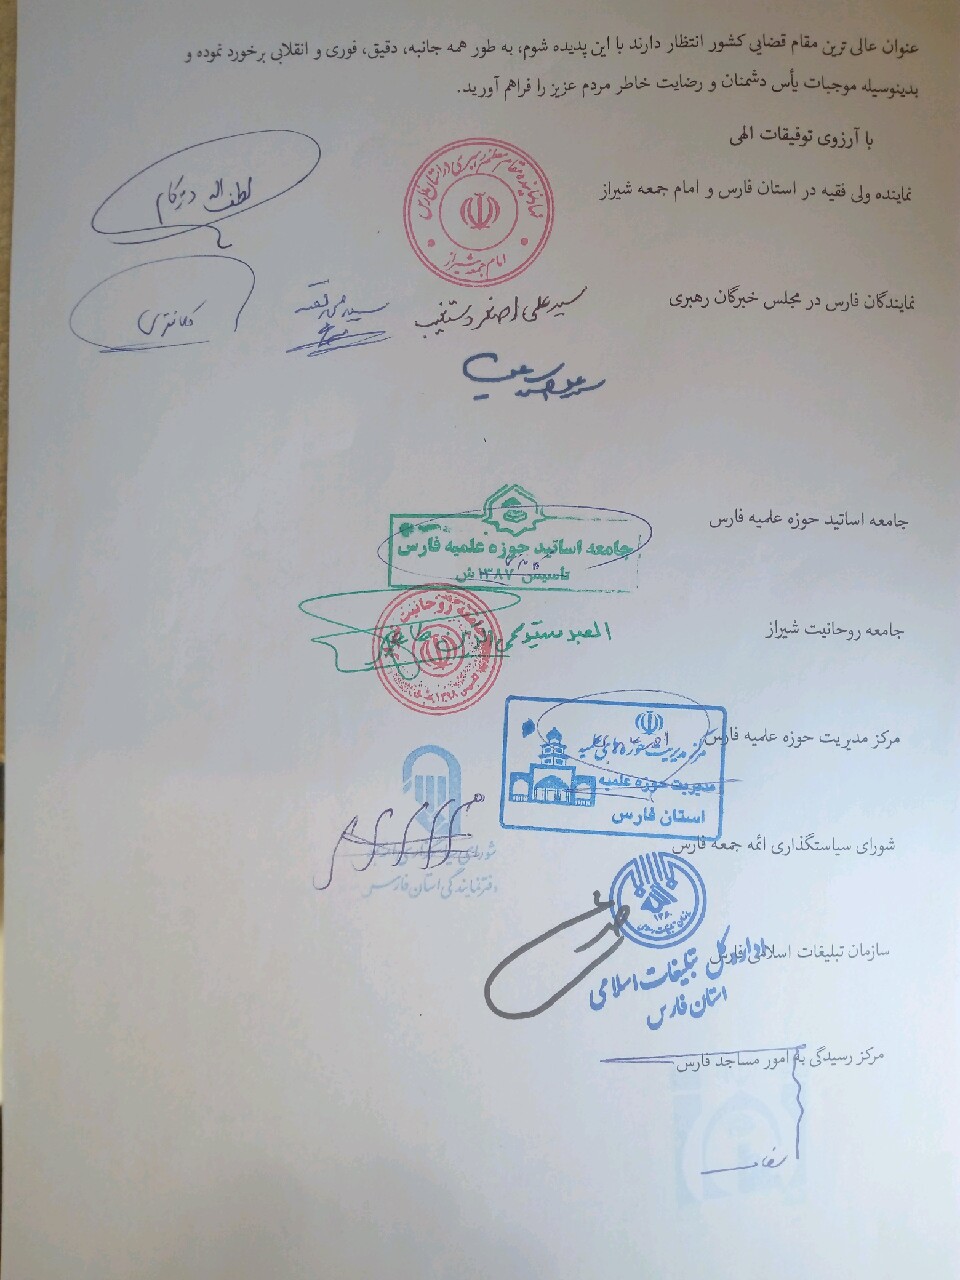 عنوان عالی ترین مقام قضایی کشور انتظار دارند با این پدیده شوم، به طور همه جانبه، دقیق، فوری و انقلابی برخورد نموده و
بدینوسیله موجبات یأس دشمنان و رضایت خاطر مردم عزیز را فراهم آورید.
با آرزوی توفیقات الهی
نماینده ولی فقیه در استان فارس و امام جمعه شیراز
امام جمعه شیراز
لطف اله دژکام
نمایندگان فارس در مجلس خبرگان رهبری
سید علی اصغر دستغیب
کلانتری
جامعه اساتید حوزه علمیه فارس
جامعه اساتید حوزه علمیه فارس
تأسیس ۱۳۸۷ ش
جامعه روحانیت شیراز
مرکز مدیریت حوزه علمیه فارس
مرکز مدیریت حوزه های علمیه
مدیریت حوزه علمیه
استان فارس
شورای سیاستگذاری ائمه جمعه فارس
دفتر نمایندگی استان فارس
سازمان تبلیغات اسلامی فارس
اداره کل تبلیغات اسلامی
استان فارس
مرکز رسیدگی به امور مساجد فارس